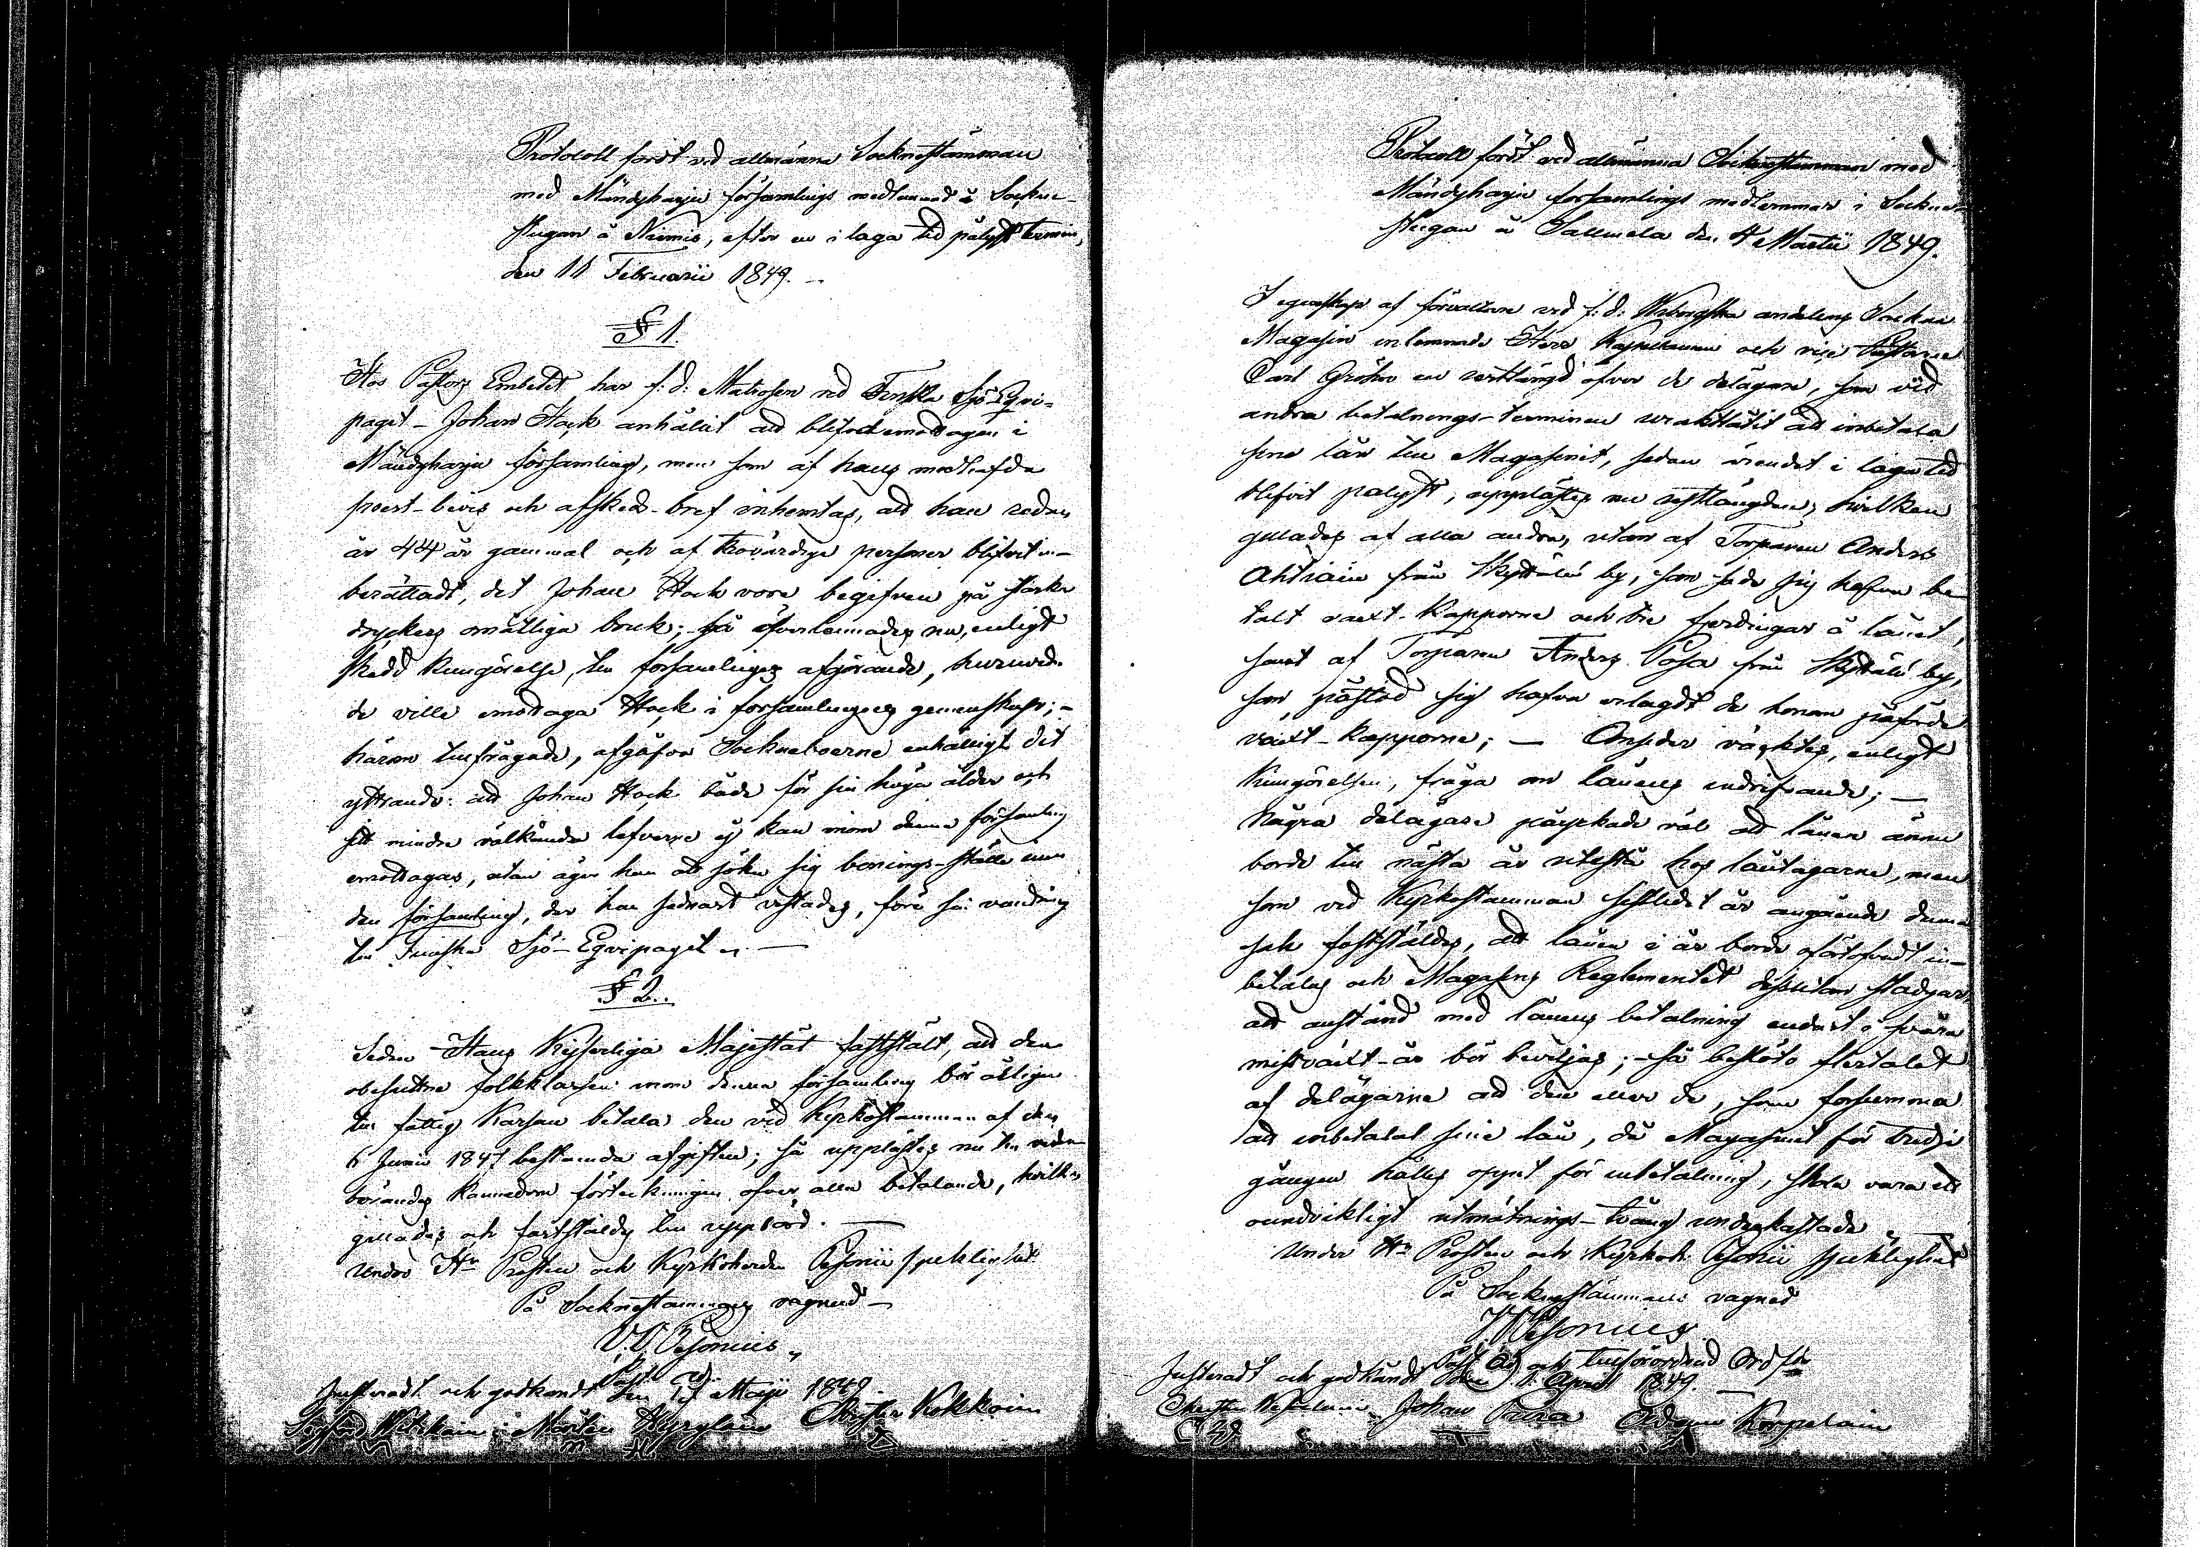 Protocoll fördt vid allmänna Socknestämman
med Mändyharju församlings medlemmar å Sockne-
stugan å Niemis, efter en i laga tid pålyst termin,
den 11 Februarii 1849.
§ 1.
Hos Pastors Embetet har f: d: Matrosen vid Finska Sjö-Eqvi-
paget - Johan Hock anhållit att blifva emottagen i
Mändyharju församling, men som af hans medhafda
prest-bevis och afskeds-bref inhemtas, att han redan
är 44 år gammal och af trovärdige personer blifvit in-
berättadt, det Johan Hock vore begifven på starka
dryckers omåttliga bruk; så öfverlemnades nu, enligt
skedd kungörelse, till församlingens afgörande, huruvida
de ville emottaga Hock i församlingens gemenskap; -
härom tillfrågade, afgåfvo Sockneboerne enhälligt det
yttrande: att Johan Hock både för sin höga ålder och
sitt mindre välkända lefverne ej kan inom denna församling
emottagas, utan äger han att söka sig bonings-ställe inom
den församling, der han sednast vistades, före sin vandring
till Finska Sjö-Eqvipaget. —
§ 2.
Sedan Hans Kejserliga Majestät fastställt, att den
obesuttna folkklassen inom denna församling bör årligen
till fattig Kassan betala den vid Kyrkostämman af den
6 Junii 1847 bestämda afgiften; så upplästes nu till veder-
börandes kännedom förteckningen öfver alla betalande, hvilken
gillades och fastställdes till uppbörd. —
Under Hr Prosten och Kyrkoherden Pesonii sjuklighet
På Socknestämmans vägnar
V. V. Pesonius
Past. Adj.
Justeradt och godkändt den Maji 1849.
Sigfrid Mårten Kyyrylein Christer Kokkoin
Protocoll fördt vid allmänna Socknestämman med
Mändyharju församlings medlemmar i Sockne-
stugan å Sallmela den 4 Martii 1849.
I egenskap af förvaltare vid f: d: Wiborgska andelens Sockne
Magasin inlemnade Herr Kapellanen och vice Pastoren
Carl Gröhn en restlängd öfver de delägare, som vid
andra betalnings-terminen uraktlåtit att inbetala
sina lån till Magasinet, sedan ärendet i laga tid
blifvit pålyst, upplästes nu restlängden, hvilken
gillades af alla andra, utom af Torparen Anders
Ahtiain från Skyttälä by, som sade sig hafva be-
talt vext-kapporne och tre fjerdingar å lånet,
samt af Torparen Anders Posa från Skyttälä by,
som påstod sig hafva erlagdt de honom påförde
växt-kapporne; — Omsider väcktes, enligt
kungörelsen, fråga om lånens indrifvande; —
Några delägare påyrkade väl att lånen ännu
borde till nästa år utestå hos låntagarne, men
som vid Kyrkostämman sistledit år angående denna
sak fastställdes, att lånen i år borde oförtöfvadt in-
betalas och Magasins Reglementet dessutom stadgar,
att anstånd med lånens betalning endast i svåra
missväxt-år bör beviljas; så beslöto flertalet
af delägarne att den eller de, som försumma
att inbetala sine lån, då Magasinet för tredje
gången hålles öppet för inbetalning, skola vara ett
oundvikligt utmätnings-tvång underkastade.
Under Hr Prosten och Kyrkoh. Pesonii sjuklighet
På Socknestämmans vägnar
V V Pesonius
Past. Adj. och tillförordnad Ordför.
Justeradt och godkändt den 1 April 1849.
Christer Johan Pura Adam Korpelain